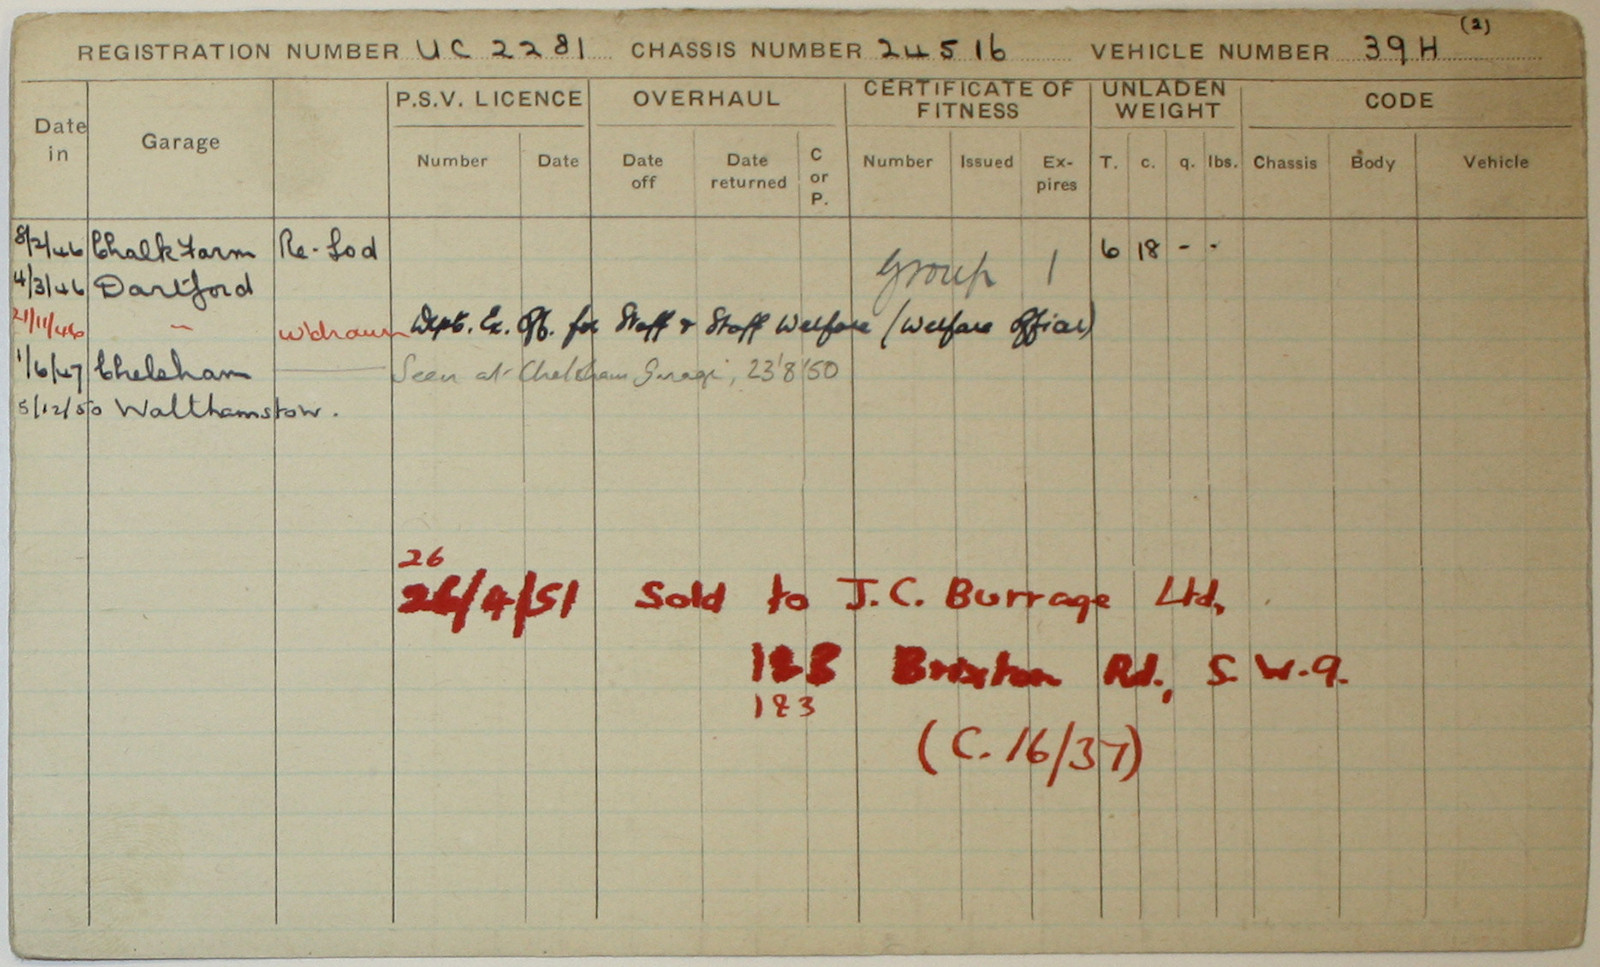 (2)
REGISTRATION NUMBER UC 2281 CHASSIS NUMBER 24516 VEHICLE NUMBER 39H
P.S.V. LICENCE OVERHAUL CERTIFICATE OF FITNESS UNLADEN WEIGHT CODE
Date in Garage Number Date Date off Date returned C or P. Number Issued Ex-pires T. c. q. lbs. Chassis Body Vehicle
8/2/46 Chalk Farm Re-Lod 6 18 - -
Group 1
4/3/46 Dartford
21/11/46 " w'drawn Dept. Ex. Off. for Staff & Staff Welfare (Welfare Office)
1/6/47 Chelsham Seen at Chelsham Garage, 23'8'50
5/12/50 Walthamstow.
26
26/4/51 Sold to J.C. Burrage Ltd,
183 Brixton Rd., S.W.9.
183
(C.16/37)